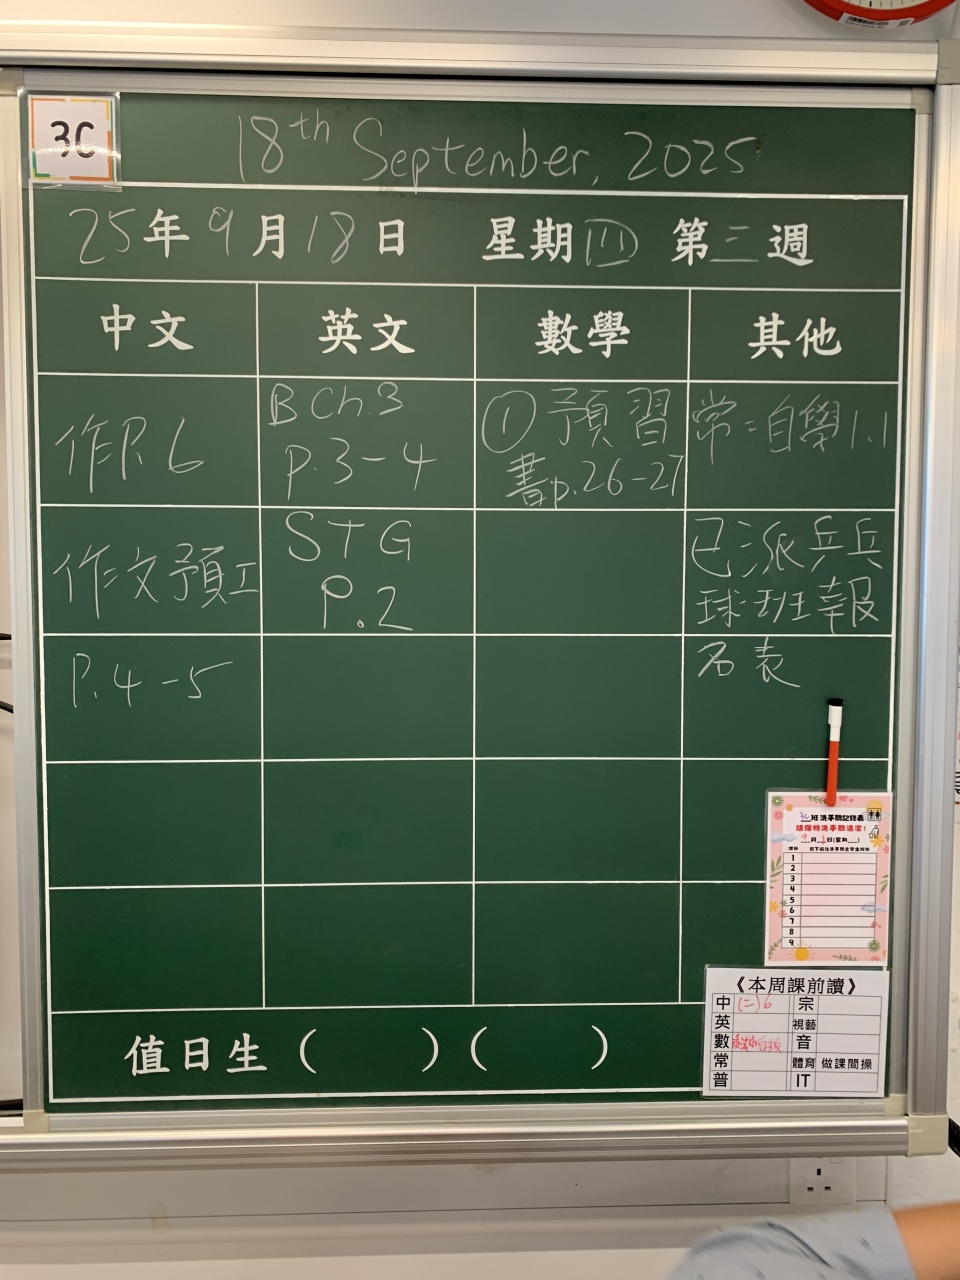 3C
18th September, 2025
25年9月18日 星期四 第三週
中文 英文 數學 其他
作P.6
B Ch.3
P.3-4
①預習
書p.26-27
常:自學1.1
作文預工
P.4-5
STG
P.2
已派乒乓
球班報
名表
3C班洗手間記錄表
請保持洗手間清潔!
9月 日(星期 )
1
2
3
4
5
6
7
8
9
《本周課前讀》
中 (二)6 宗
英 視藝
數 音
常 體育 做課間操
普 IT
值日生( )( )